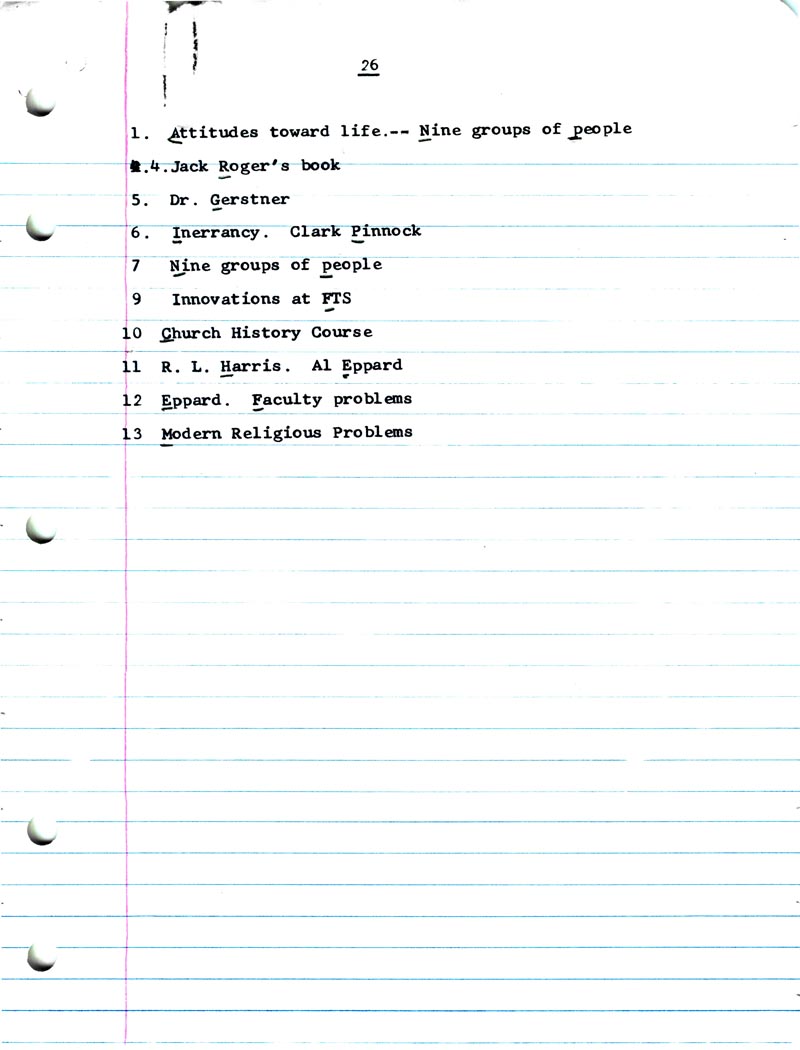 26
1. Attitudes toward life.-- Nine groups of people
4.Jack Roger's book
5. Dr. Gerstner
6. Inerrancy. Clark Pinnock
7 Nine groups of people
9 Innovations at FTS
10 Church History Course
11 R. L. Harris. Al Eppard
12 Eppard. Faculty problems
13 Modern Religious Problems